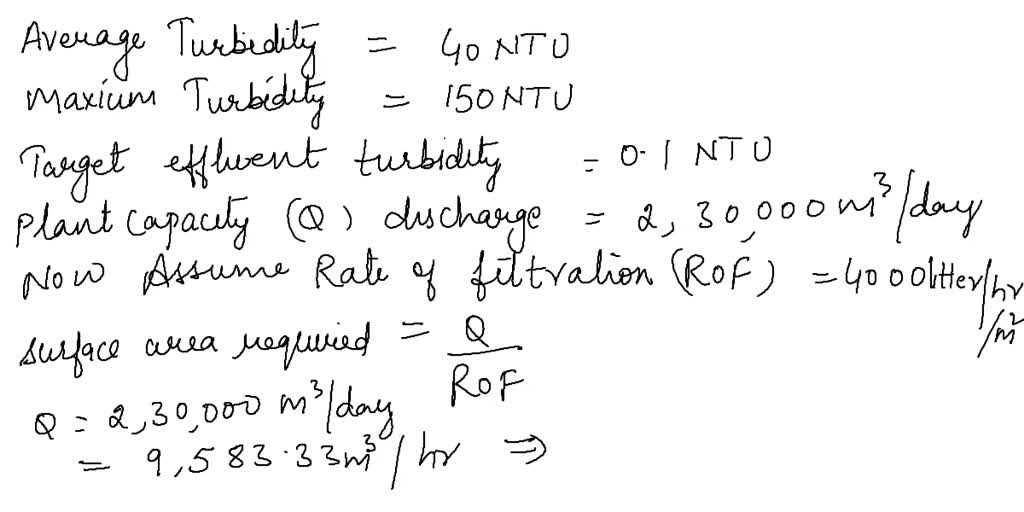 Average Turbidity = 40 NTU
Maxium Turbidity = 150 NTU
Target effluent turbidity = 0.1 NTU
Plant Capacity (Q) discharge = 2,30,000 m³/day
Now Assume Rate of filtration (ROF) = 4000 litter/hr/m²
Surface area required = Q/ROF
Q = 2,30,000 m³/day
= 9,583.33 m³/hr ⇒